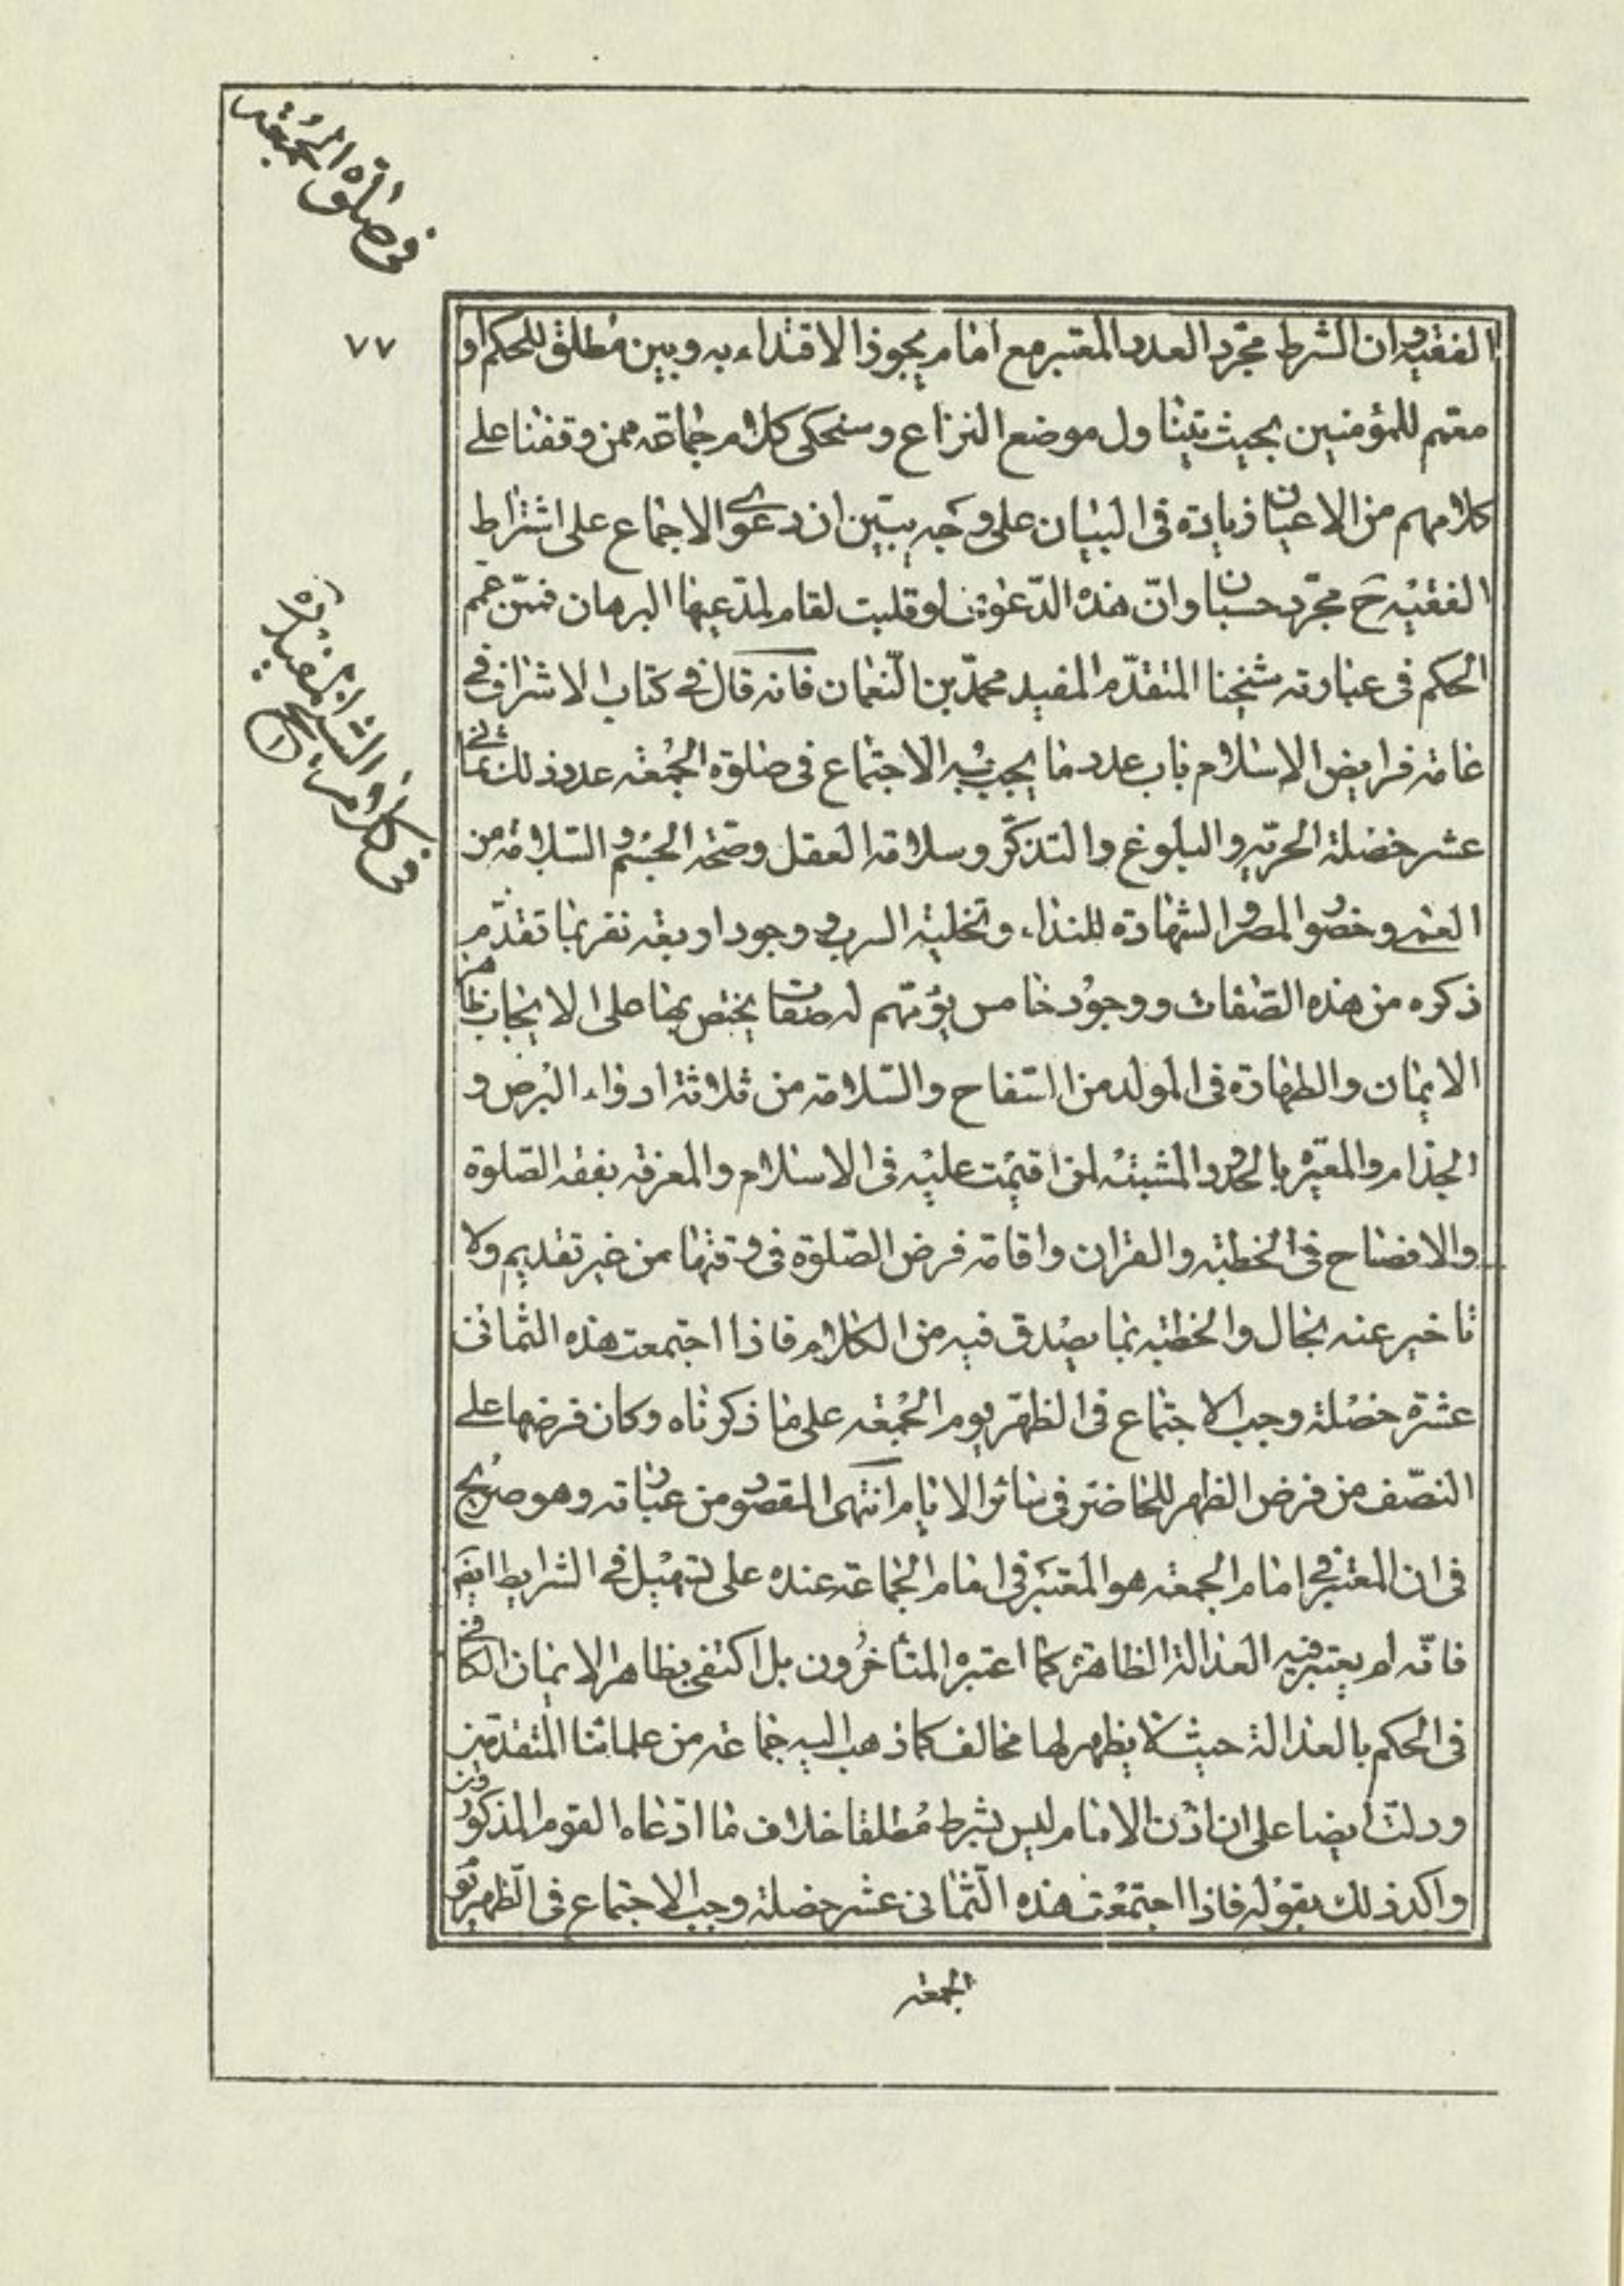 في صلوة الجمعه
٧٧
الفقيه وان الشرط مجرد العدد المعتبر مع امام يجوز الاقتداء به وبين مطلق للحكم او
معمم للمؤمنين بحيث يتناول موضع النزاع وسنحكى كلام جماعة ممن وقفنا على
كلامهم من الاعيان زيادة فى البيان على وجه يبين ان دعوى الاجماع على اشتراط
الفقيه ح مجرد حسبان وانّ هذه الدّعوى لو قلبت لقام لمدّعيها البرهان فممّن عمم
الحكم فى عبارته شيخنا المتقدّم المفيد محمّد بن النّعمان فانه قال فى كتاب الاشراف فى
عامة فرايض الاسلام باب عدد ما يجب به الاجتماع فى صلوة الجمعه عدد ذلك ثمانى
عشر خصلة الحرّيه والبلوغ والتذكّر وسلامة العقل وصحّة الجسم والسّلامة من
العمى وحضور المصر والشهادة للنداء وتخلية السرب ووجود اربعة نفر بما تقدّم
ذكره من هذه الصّفات ووجود خامس يؤمّهم له صفات يختص بها على الايجاب ظاهر
الايمان والطهارة فى المولد من السّفاح والسّلامة من ثلاثة ادواء البرص و
الجذام والمعرّة بالحدود المشينه لمن اقيمت عليه فى الاسلام والمعرفة بفقه الصّلوة
والافصاح فى الخطبه والقران واقامة فرض الصّلوة فى وقتها من غير تقديم ولا
تاخير عنه بحال والخطبه بما يصدق فيه من الكلام فاذا اجتمعت هذه الثمانى
عشرة خصلة وجب الاجتماع فى الظهر يوم الجمعه على ما ذكرناه وكان فرضها على
النصّف من فرض الظهر للحاضر فى سائر الايام انتهى المقصود من عبارته وهو صريح
فى ان المعتبر فى امام الجمعه هو المعتبر فى امام الجماعة عنده على تسهيل فى الشرايط ايضا
فانّه لم يعتبر فيه العدالة الظاهرة كما اعتبره المتأخرون بل اكتفى بظاهر الايمان الكافى
فى الحكم بالعدالة حيث لا يظهر لها مخالف كما ذهب اليه جماعة من علمائنا المتقدمين
ودلت ايضا على ان اذن الامام ليس بشرط مطلقا خلاف ما ادّعاه القوم المذكورون
واكد ذلك بقوله فاذا اجتمعت هذه الثمانى عشر خصلة وجب الاجتماع فى الظهر يوم
الجمعه